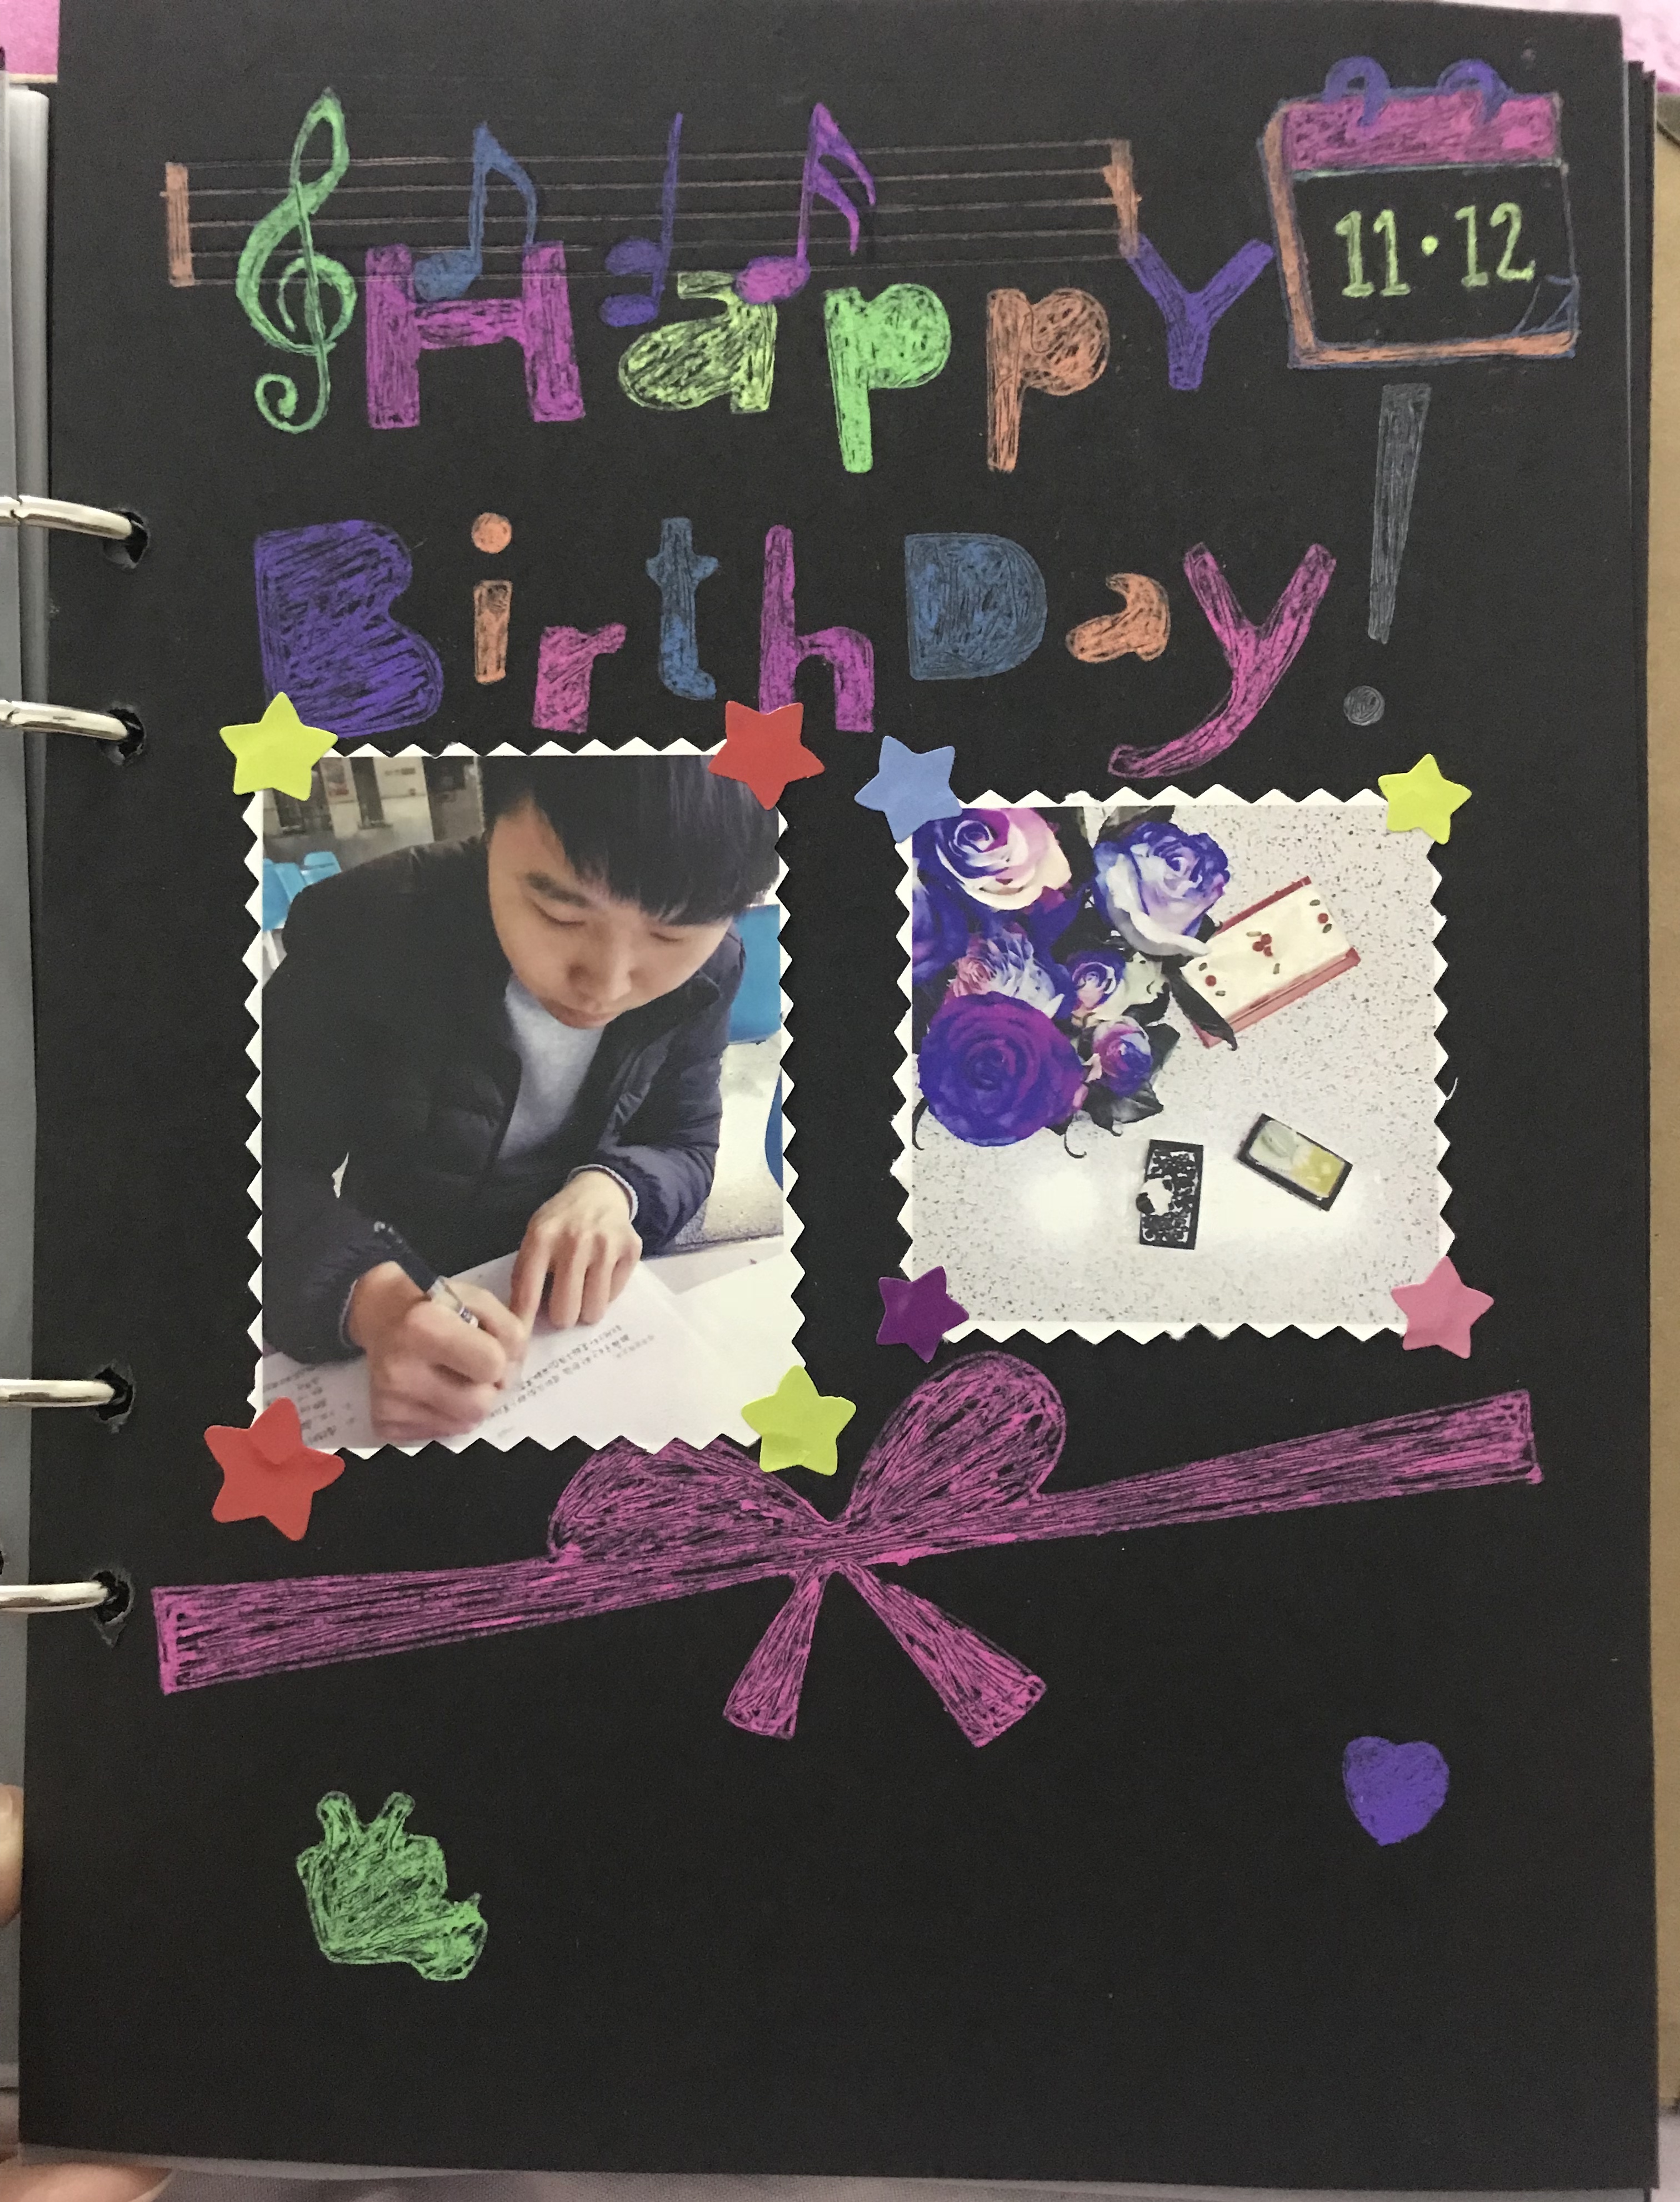 Happy
11·12
BirthDay!